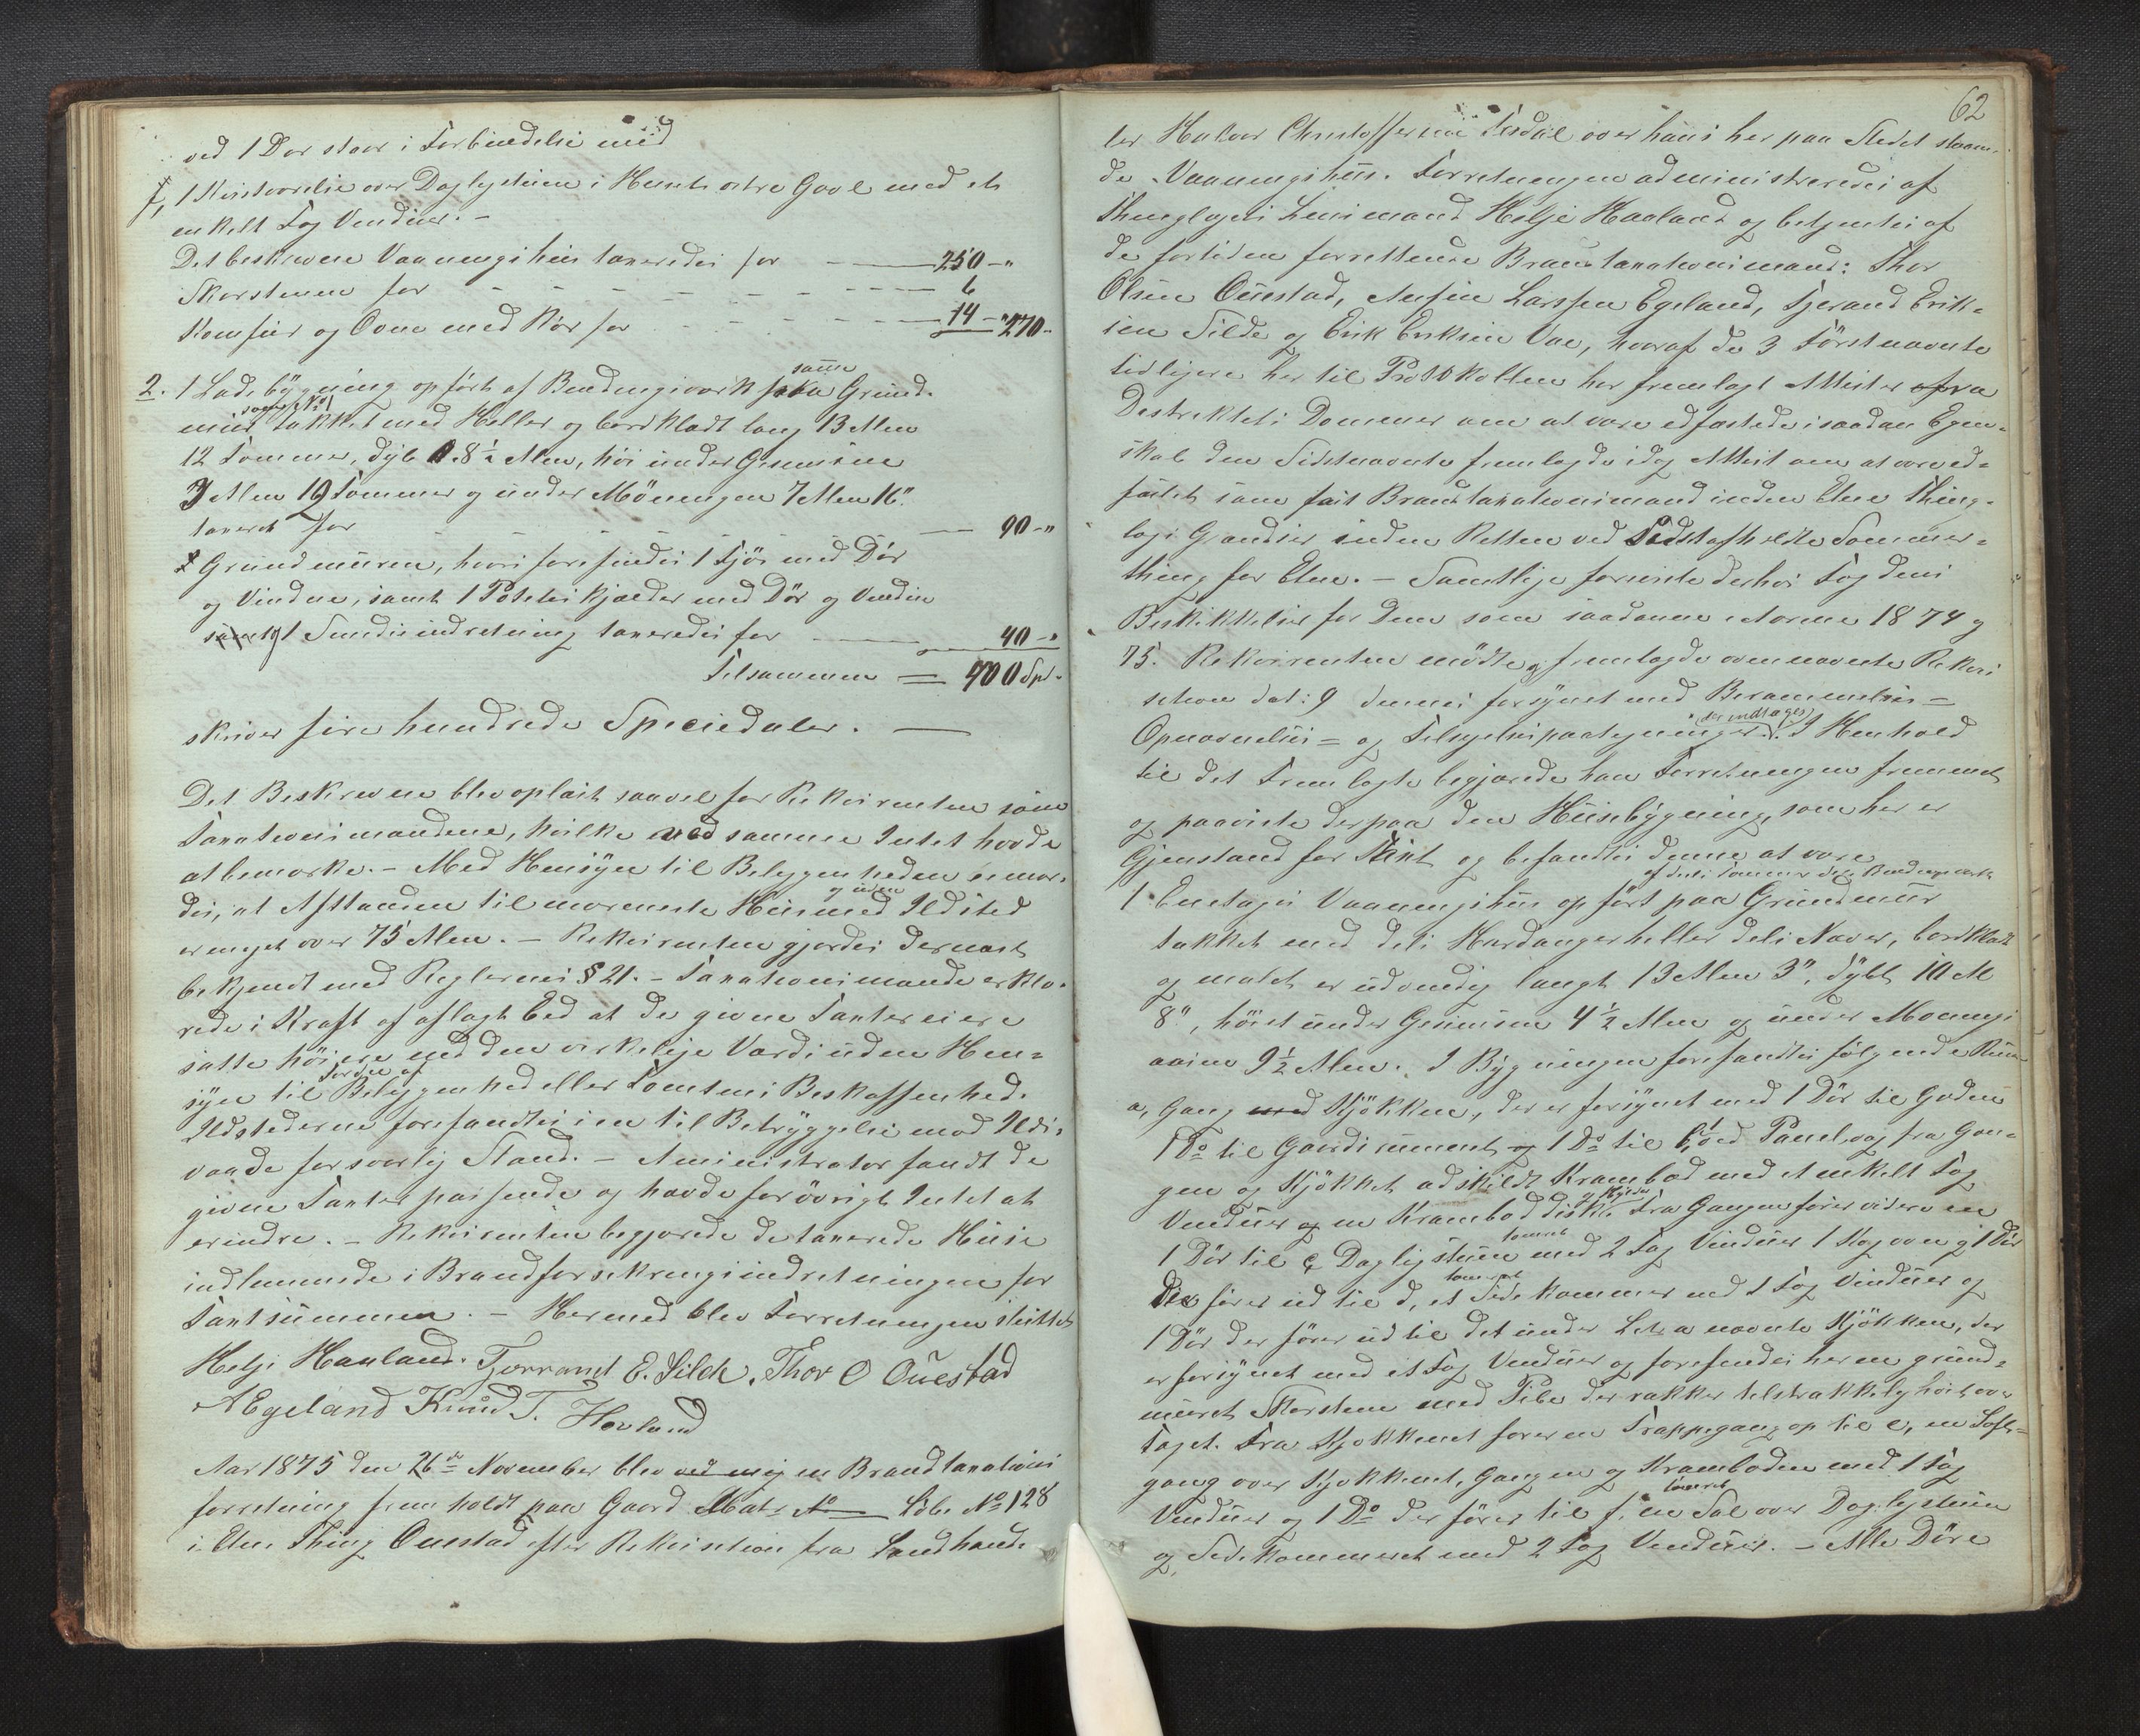 ved 1 Dør staar i Forbindelse med
f, 1 Kvistværelse over Daglystuen i Husets østre Gavl med et
enkelt Fag Vinduer. –
Det beskrevne Vaaningshus taxeredes for — 250 – "
Skorstenen for — 6
Komfur og Ovne med Rør for — 14 – " 270 –
2. 1 Ladebygning opført af Bindingsværk paa samme Grund-
mur takket med Heller og bordklædt lang 13 Alen
12 Tommer, dyb 8 ½ Alen, høi under Gesimsene
3 Alen 19 Tommer og under Mønningen 7 Alen 16".
taxeret for — 90 – "
Grundmuren, hvori forefindes 1 Fjøs med Dør
og Vindue, samt 1 Potetes kjælder med Dør og Vindue
1 indretning taxeredes for — 40 – "
Tilsammen = 400 Spd.
skriver fire hundrede Speciedaler. —
Det Beskrevne blev oplæst saavel for Rekvirenten som
Taxationsmændene, hvilke ved samme Intet havde
at bemærke. – Med Hensyn til Belyggenheden bemær-
des, at Afstanden til nærmeste Hus med og uden Ildsted
er meget over 75 Alen. – Rekvirenten gjordes dernæst
bekjendt med Reglerne i § 21. – Taxationsmænde erklæ-
rede i Kraft af aflagt Eed at de givne Taxter ei ere
satte høiere end den virkelige Værdi uden Hen-
syn til Fordele af Belyggenhed eller Tomtens Beskaffenhed.
Ildstederne forefandtes i en til Betryggelse mod Ilds-
vaade forsvarlig Stand. – Aministrator fandt de
givne Taxter passende og havde forøvrigt Intet at
erindre. – Rekvirenten begjærede de taxerede Huse
indlemmede i Brandforsikringsindretningen for
Taxtsummen. – Hermed blev Forretningen sluttet
Helje Haaland. Tjerrand E. Silde, Thor O Ouestad
A Egeland Knud T. Hovland
Aar 1875 den 26de November blev ved mig en Brandtaxations
forretning fremholdt paa Gaard Matr No — Løbe No 128
i Etne Thing Ouestad efter Rekvisition fra Landhand-
62
ler Halvor Christoffersen Tesdal over hans her paa Stedet staaen-
de Vaaningshus. Forretningen administreredes af
Thinglagets Lensmand Helje Haaland og betjentes af
de fortiden forrettende Brandtaxationsmænd: Thor
Olsen Ouestad, Larssen Egeland, Tjerand Erik-
sen Silde og Erik Eriksen Vae, hvoraf de 3 Førstnævnte
tidligere her til Protokollen har fremlagt Attester fra
Destriktets Dommer om at være edfæstede i saadan Egen-
skab den Sidstnævnte fremlagde idag Attest om at være ed-
fæstet som fast Brandtaxationsmand inden Etne Thing-
lags Grændser inden Retten ved Sidstafholdte Sommer-
thing for Etne. – Samtlige foreviste derhos Fogdens
Beskikkelser for dem som saadanne Aarene 1874 og
75. Rekvirenten mødte og fremlagde ovennævnte Rekvi
sition dat: 9 dennes forsynet med Berammelses –
Opnævnelses = og Tilsigelsespaategninger der indtages. I Henhold
til det Fremlagte begjærede han Forretningen fremmet
og paaviste derpaa den Husebygning, som her er
Gjenstand for Taxt og befandtes denne at være
1. Enetages Vaaningshus opført af dels Tømmer dels Bindingsværk paa Grundmur
takket med dels Hardangerheller dels Næver, bordklædt
og malet er udvendig langt 13 Alen 3", dybt 10 Al
8", høiet under Gesimsen 4 ½ Alen og under Mønings
aasen 9 ½ Alen. I Bygningen forefandtes følgende Rum
a, Gang med Kjøkken, der er forsynet med 1 Dør til Gaden
1 Do til Gaardsrummet og 1 Do til b, et ved Panel og fra Gan-
gen og Kjøkket adskildt Krambod med et enkelt Fag
Vinduer og en Kramboddiske og Hylder. Fra Gangen fører videre en
1 Dør til c, Daglystuen tømret med 2 Fag Vinduer 1 Kogovn og 1 Dør
der fører ud til d, et tømret Sidekammer med 1 Fag Vinduer og
1 Dør der fører ud til det under Lit. a nævnte Kjøkken, der
er forsynet med et Fag Vinduer og forefindes heri en grund-
muret Skorstene med Pibe der rækker tilstrækkelig høit over
Taget. Fra Kjøkkenet fører en Trappegang op til e, en Loft-
gang over Kjøkkenet, Gangen og Kramboden med 1 Fag
Vinduer og 1 Do der fører til f, en tømret Sal over Daglystuen
og Sidekammeret med 2 Fag Vinduer. – Alle Døre